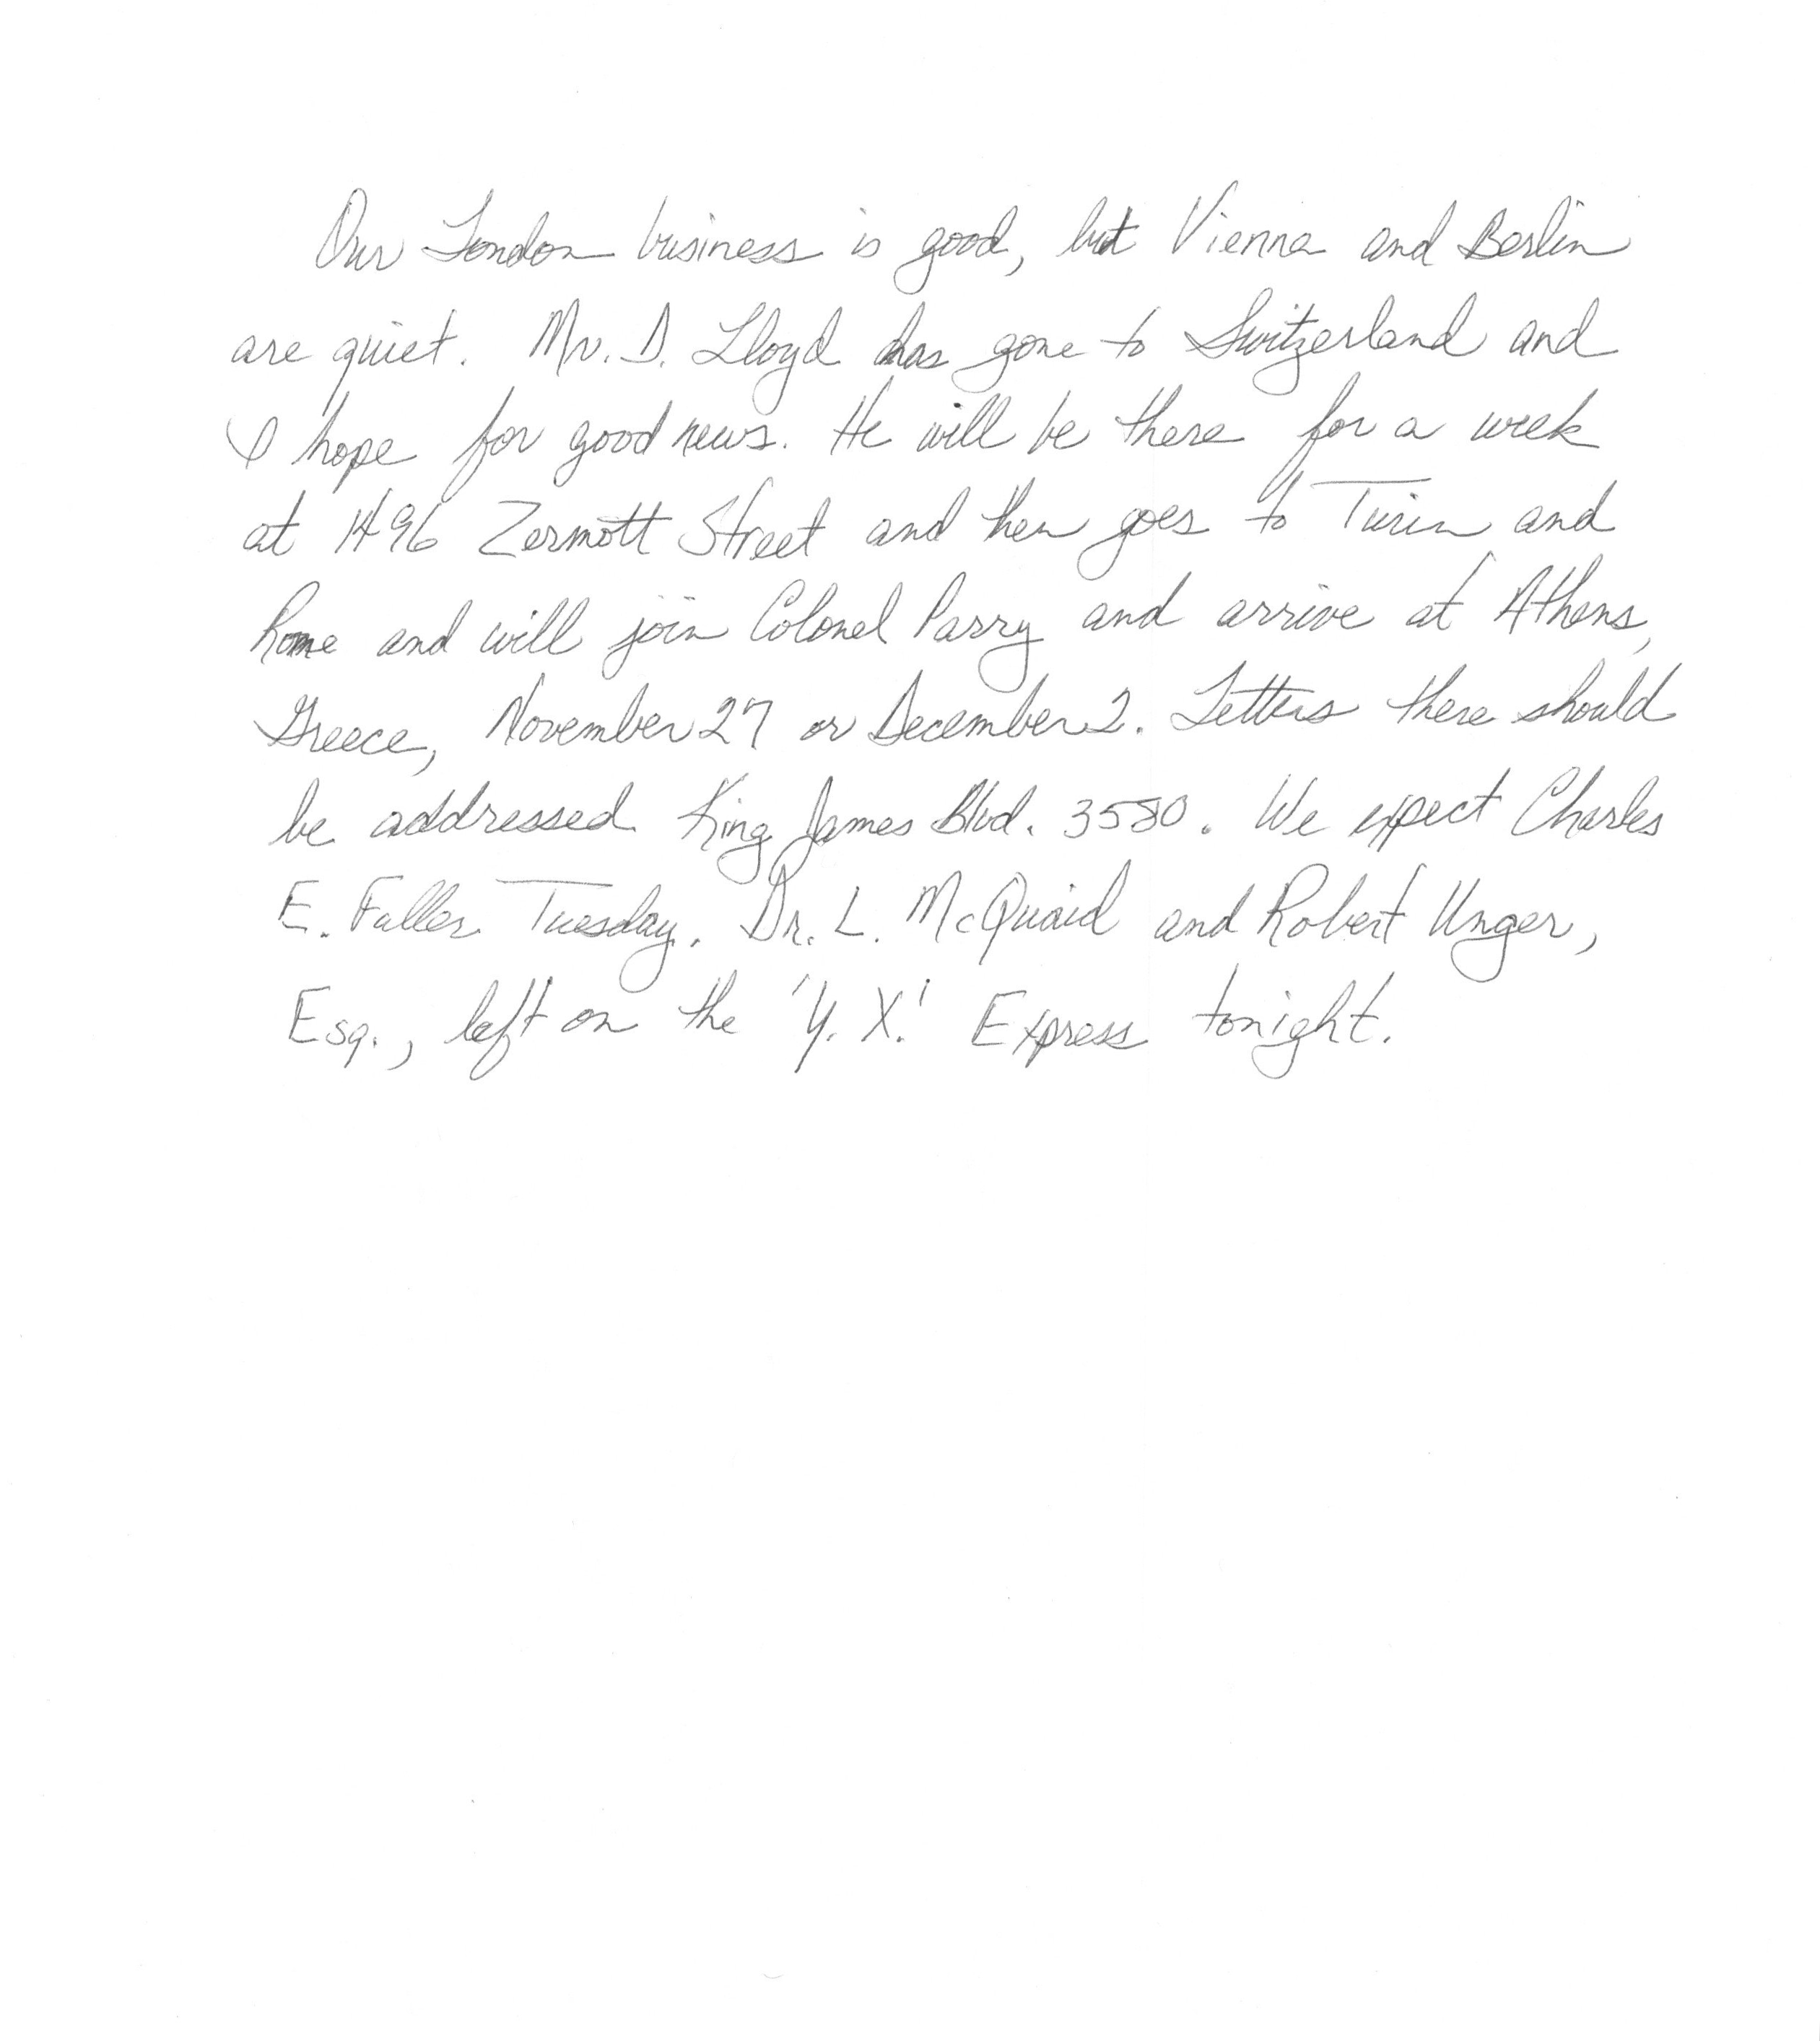 Our London business is good, but Vienna and Berlin
are quiet. Mr. D. Lloyd has gone to Switzerland and
I hope for good news. He will be there for a week
at 1496 Zermott Street and then goes to Turin and
Rome and will join Colonel Parry and arrive at Athens,
Greece, November 27 or December 2. Letters there should
be addressed King James Blvd. 3580. We expect Charles
E. Fuller Tuesday. Dr. L. McQuaid and Robert Unger,
Esq., left on the 'Y. X.' Express tonight.